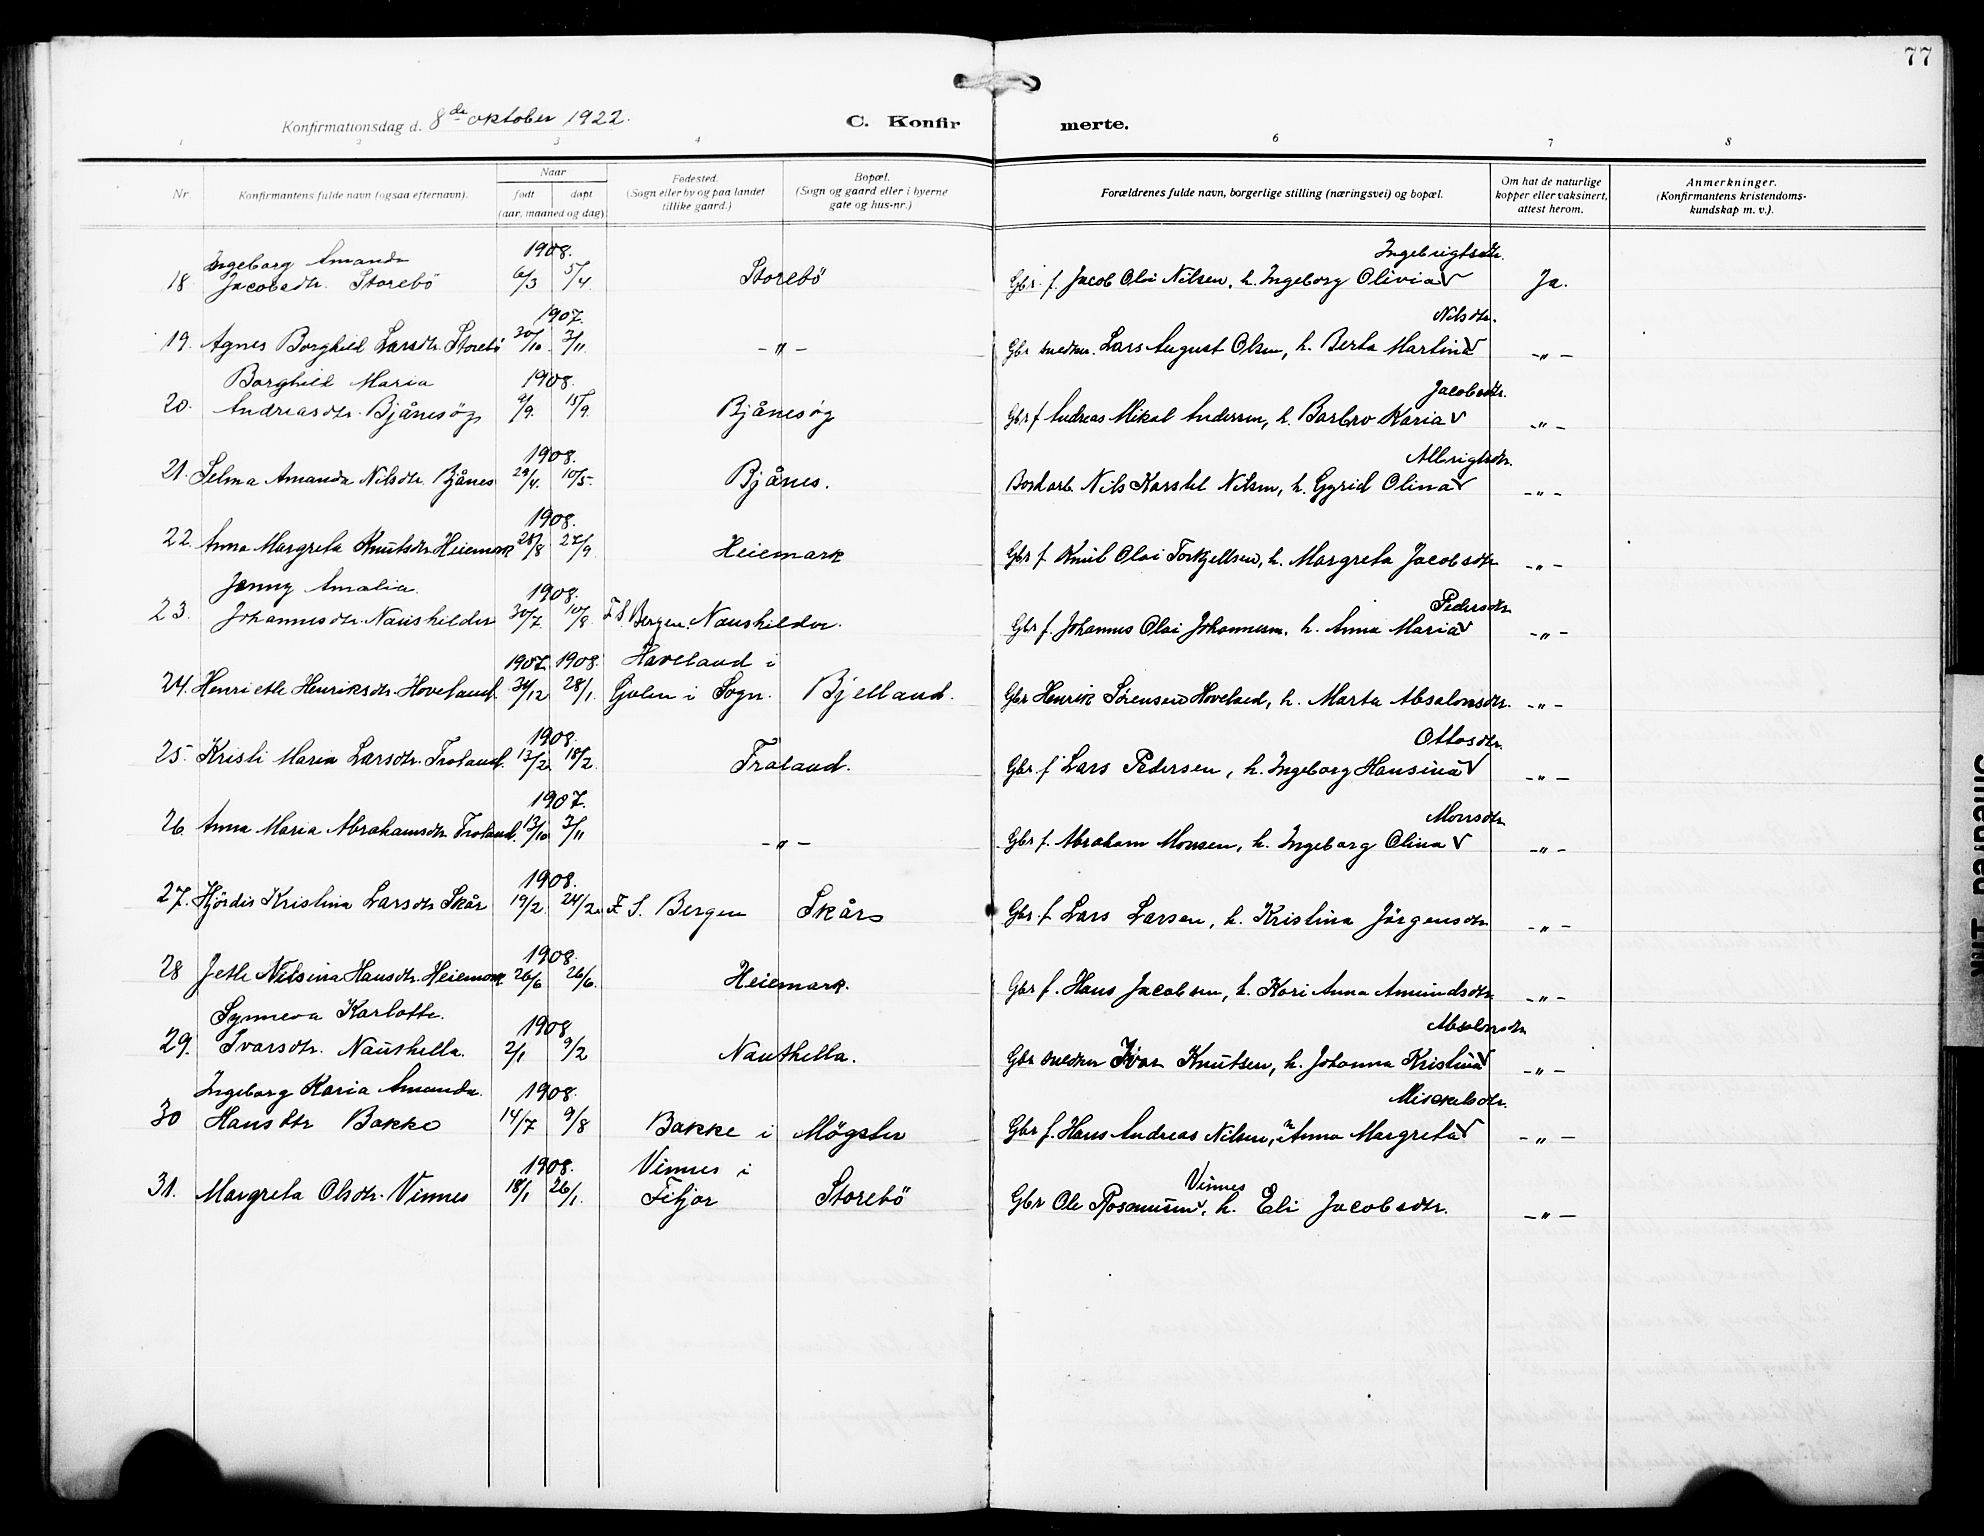 77
Konfirmationsdag d. 8de oktober 1922.
C. Konfirmerte.
1 2 3 4 6 7 8
Nr.
Konfirmantens fulde navn (ogsaa efternavn).
Naar
født
døpt
(aar, maaned og dag)
Fødested.
(Sogn eller by og paa landet
tillike gaard.)
Bopæl.
(Sogn og gaard eller i byerne
gate og hus-nr.)
Forældrenes fulde navn, borgerlige stilling (næringsvei) og bopæl.
Om hat de naturlige
kopper eller vaksinert,
attest herom.
Anmerkninger.
(Konfirmantens kristendoms-
kundskap m. v.).
Ingeborg Amanda 1908. Ingebrigtsdtr.
18 Jacobsdtr. Storebö 6/3 5/4 Storebö Gbr. f. Jacob Olai Nilsen, h. Ingeborg Olivia √ Ja.
1907. Nilsdtr.
19. Agnes Borghild Larsdtr. Storebö 30/10 3/11 -"- Gbr snedker. Lars August Olsen, h. Berta Martina √ -"-
Borghild Maria 1908. Jacobsdtr.
20. Andreasdtr. Bjånesög /9. 15/9 Bjånesög Gbr f Andreas Mikal Andersen, h. Barbro Karia √ -"-
1908. Albrigtsdtr.
21. Selma Amanda Nilsdtr. Bjånes 29/4. 10/5. Bjånes. Nils Karstel Nilsen, h. Gyrid Olina √ -"-
1908.
22. Anna Margreta Knutsdtr Heiemark 28/8 27/9 Heiemark Gbr f. Knut Olai Torkjellsen, h. Margreta Jacobsdtr -"-
Jenny Amalia. 1908. Pedersdtr
23. Johannesdtr. Nauskilder 30/7. 10/8 F.S. Bergen. Nauskilder. Gbr f. Johannes Olai Johannesen, h. Anna Maria √ -"-
1907. 1908. Haveland i
24. Henriette Henriksdtr. Hoveland. 31/12 28/1. Gulen i Sogn. Bjelland. Gbr Henrik Sörensen Hoveland, h. Marta Absalonsdtr. -"-
1908. Ottosdtr.
25. Kristi Maria Larsdtr. Troland. 13/2 18/2. Troland. Gbr. f Lars Pedersen, h. Ingeborg Hansina √ -"-
1907. Monsdtr
26. Anna Maria Abrahamsdtr Troland. 13/10 3/11 -"- Gbr f. Abraham Monsen, h. Ingeborg Olina √ -"-
1908.
27. Hjördis Kristina Larsdtr Skår 19/2. 24/2. F. S. Bergen Skår Gbr. f Lars Larsen, h. Kristina Jörgensdtr -"-
1908.
28 Jette Nilsina Hansdtr. Heiemark 26/6 26/6. Heiemark. Gbr f. Hans Jacobsen, h. Kari Anna Amundsdtr -"-
Synneva Karlotte. 1908. Absalonsdtr
29. Ivarsdtr. Nauthella. 2/1 9/2 Nauthella. Gbr snedker Ivar Knutsen, h. Johanna Kristina √ -"-
Ingeborg Karia Amanda. 1908. Mickelsdtr.
30 Hansdtr Bakke 14/7 9/8 Bakke i Mögster Gbr f. Hans Andreas Nilsen, h Anna Margreta √ -"-
1908. Vinnes i Vinnes
31. Margreta Olsdtr. Vinnes 18/1 26/1. Fitjar Storebö Gbr Ole Rasmussen √, h. Eli Jacobsdtr. -"-